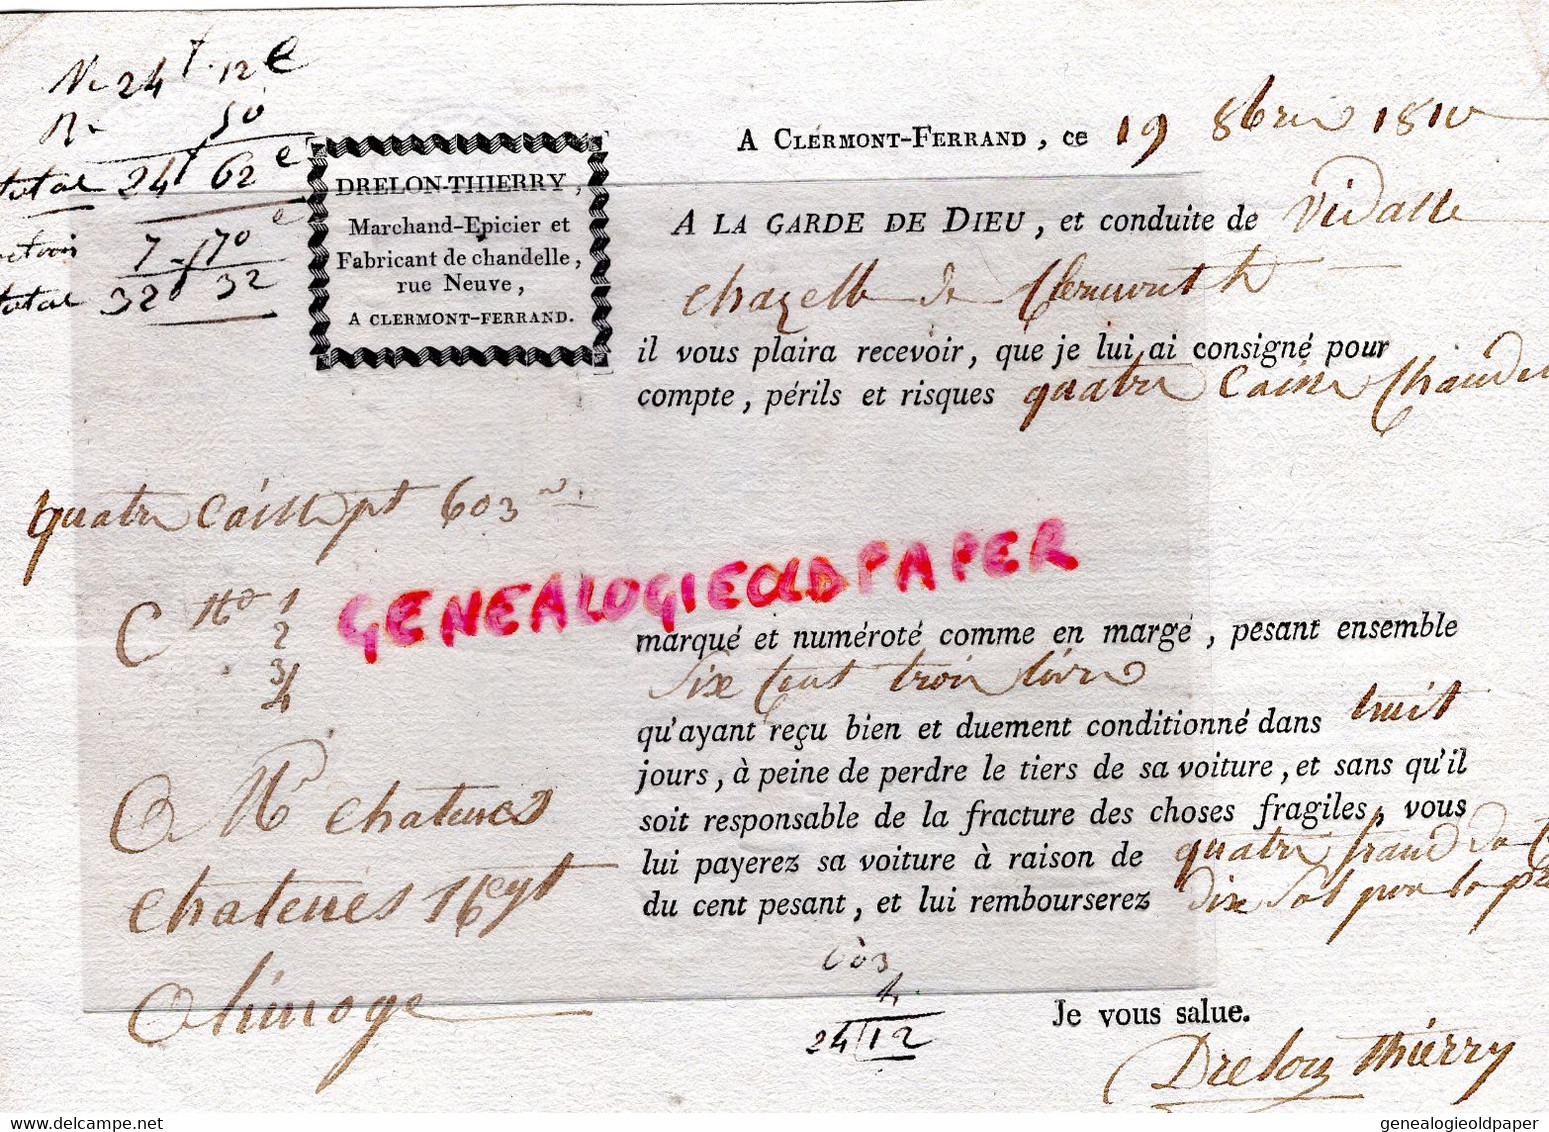 Nº 24 f. 12 c
50
total 24 f 62 c
7 - 70 c
total 32 f 32
DRELON-THIERRY,
Marchand-Epicier et
Fabricant de chandelle,
rue Neuve,
A CLERMONT-FERRAND.
A CLERMONT-FERRAND, ce 19 8bre 1810
A LA GARDE DE DIEU, et conduite de Vidalle
Chazelle de Clermont
il vous plaira recevoir, que je lui ai consigné pour
compte, périls et risques quatre Caisse Chandel
quatre Caisse pt 603
GENEALOGIEOLDPAPER
C Nº 1
2
3
4
marqué et numéroté comme en marge, pesant ensemble
Six Cent trois livre
qu'ayant reçu bien et duement conditionné dans huit
jours, à peine de perdre le tiers de sa voiture, et sans qu'il
soit responsable de la fracture des choses fragiles, vous
lui payerez sa voiture à raison de quatre franc
du cent pesant, et lui rembourserez dix Sol pour la
A Mr Chatenès
Chatenès
A Limoge
603
4
24|12
Je vous salue.
Drelon Thierry
genealogieoldpaper